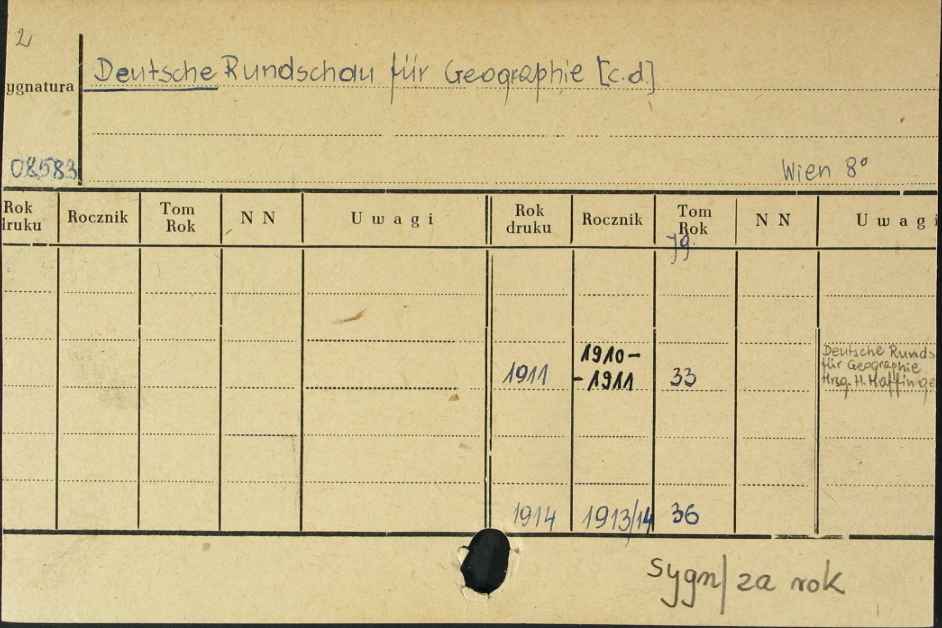 2
ygnatura
Deutsche Rundschau für Geographie [c.d.]
08583
Wien 8°
Rok druku Rocznik Tom Rok N N Uwagi Rok druku Rocznik Tom Rok N N Uwagi
Jg.
1911 1910-
-1911 33
Deutsche Runds
für Geographie
Hrsg. H. Haffinge
1914 1913/14 36
sygn/ za rok